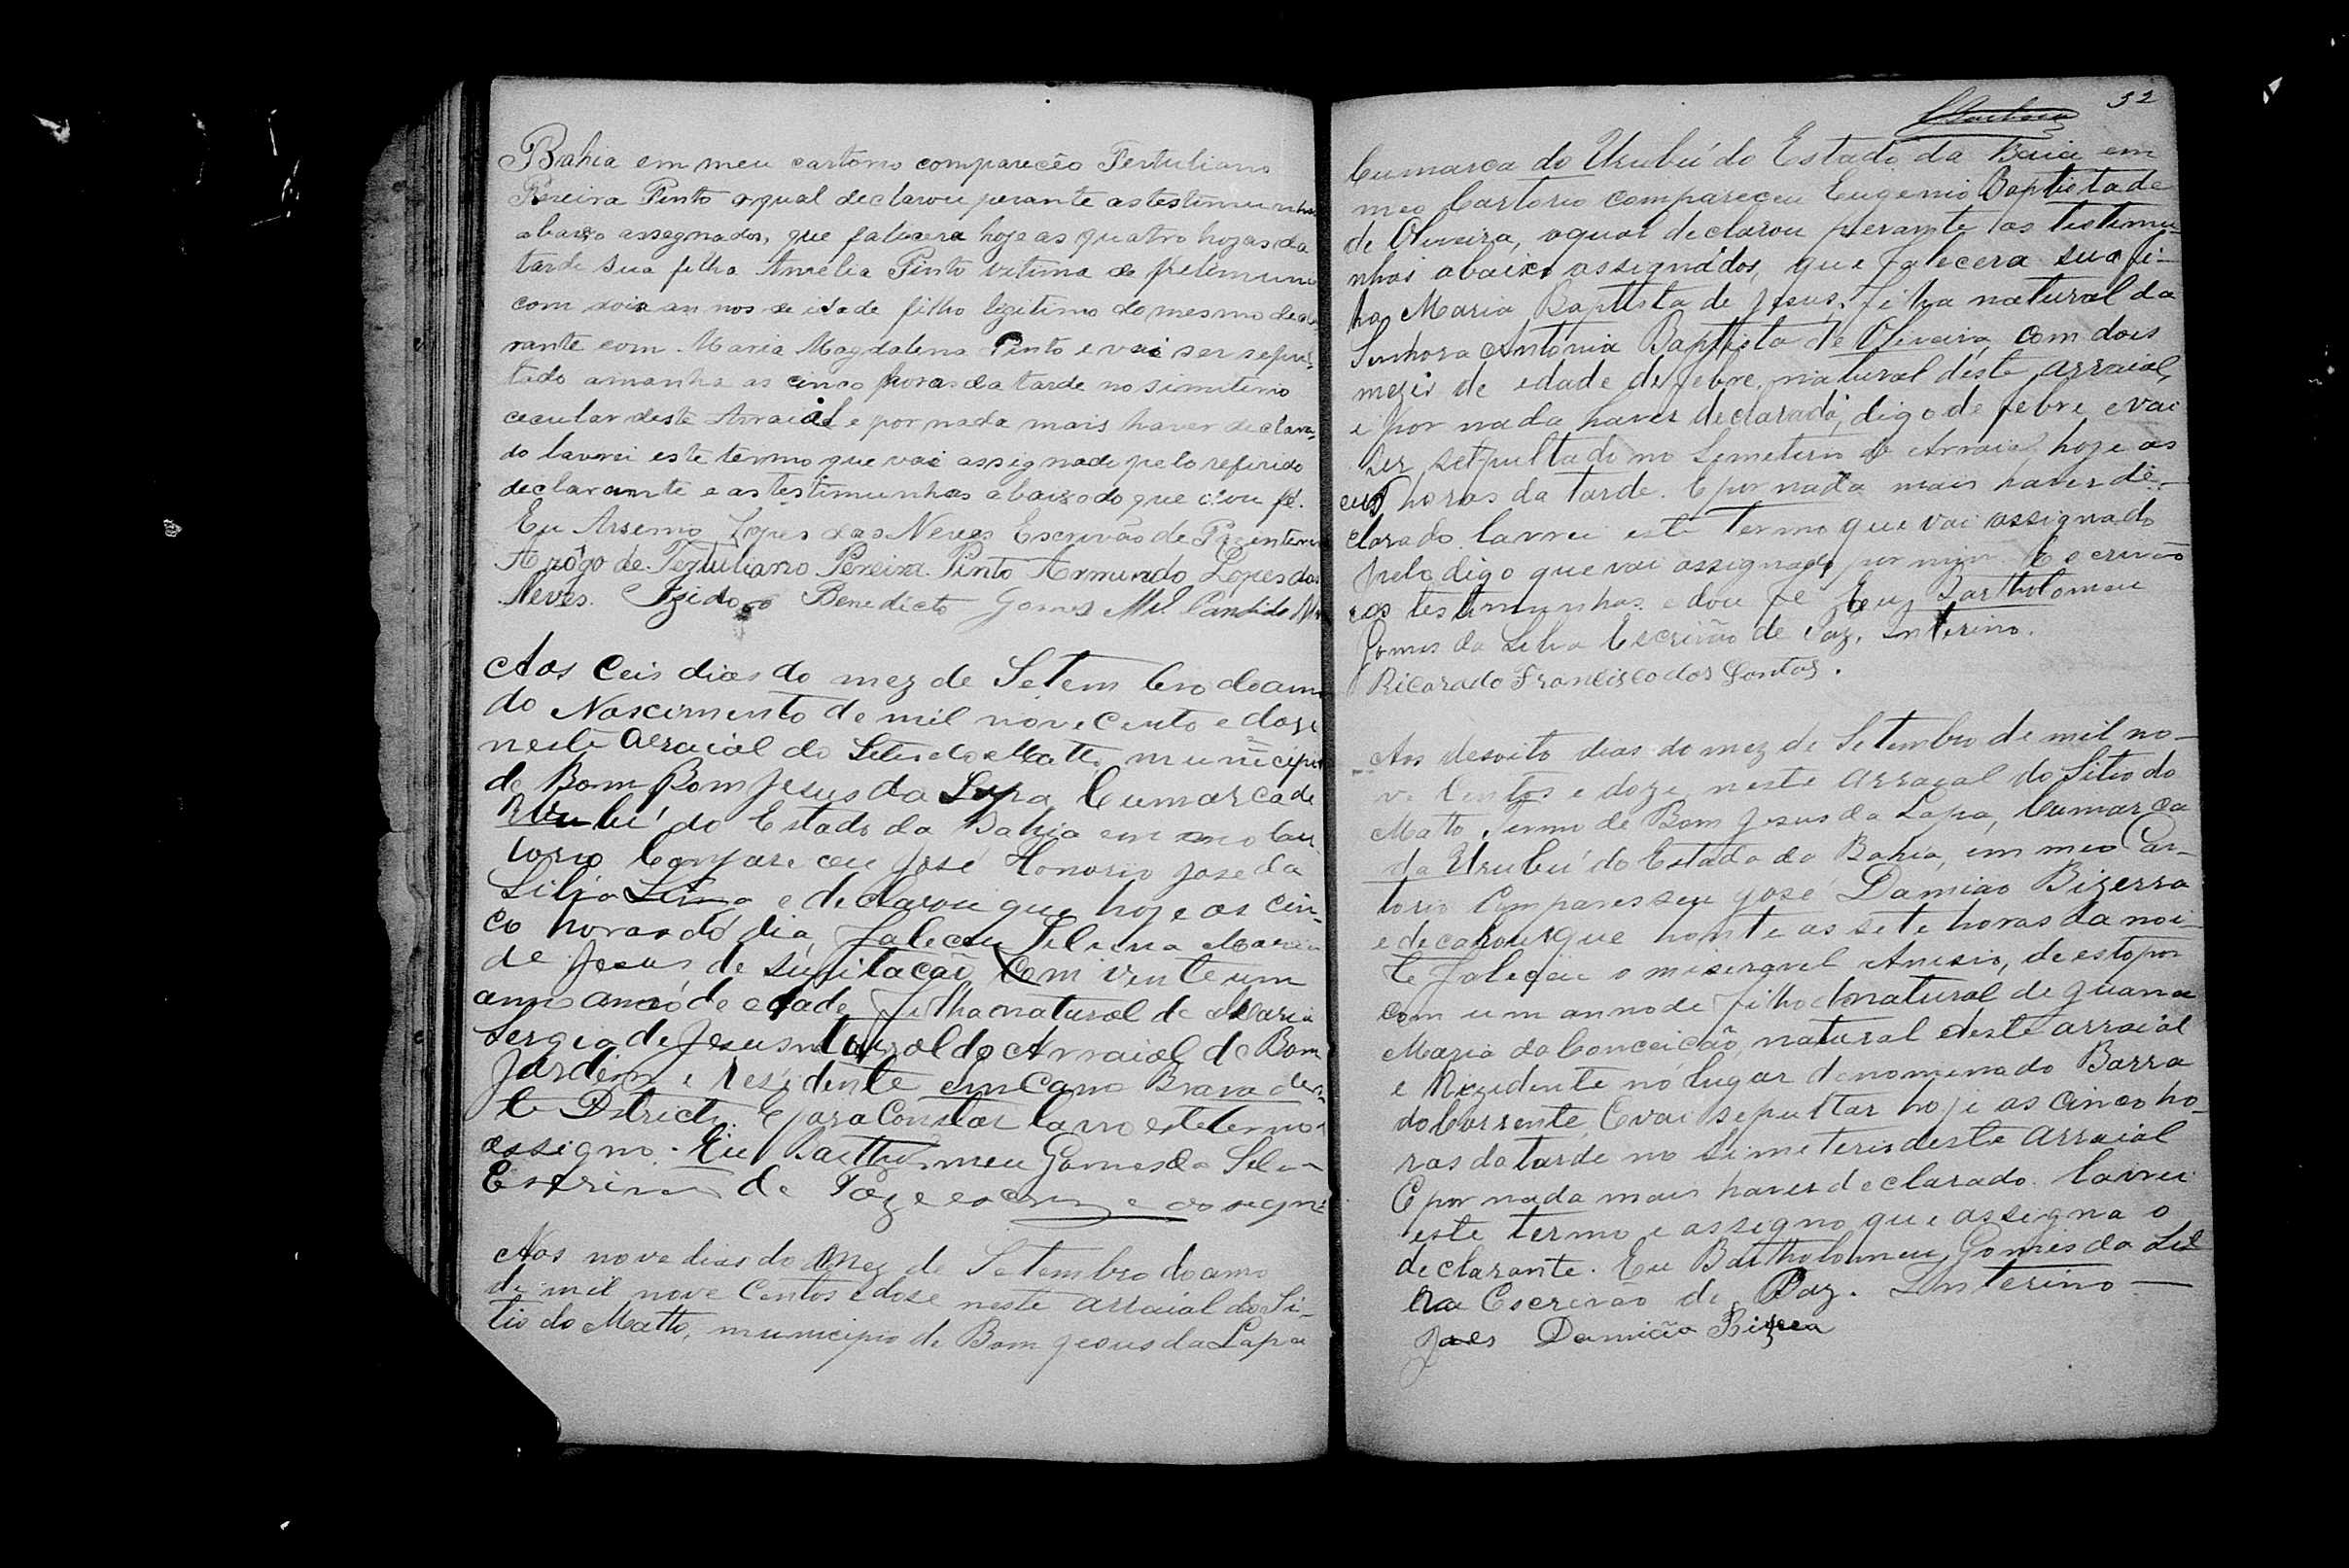 Bahia em meu cartorio compareceo Tertuliano
Pereira Pinto o qual declarou perante as testimunhas
abaixo assegnados, que falicera hoje as quatro horas da
tarde sua filha Amelia Pinto vitima de
com dois annos de idade filho legitimo do mesmo decla
rante com Maria Magdalena Pinto e vai ser sepul-
tado amanha as cinco horas da tarde no simiterio
cecular deste Arraial e por nada mais haver declara-
do lavrei este termo que vai assignado pelo referido
declarante e as testimunhas abaixo do que dou fé.
Eu Arsenio Lopes das Neves Escrivão de Paz interino
Arôgo de Tertuliano Pereira Pinto Armundo Lopes das
Neves. Izidoro Benedicto Gomes Mel. Candido
Aos Ceis dias do mez de Setembro do anno
do Nascimento de mil nove Cento e doze
neste Arraial do Sitio do Matto municipio
de Bom Bom Jesus da Lapa Cumarca de
Urubú do Estado da Bahia em meo Car
torio Compareceu José Honorio José da
Silva e declarou que hoje as cin-
co horas do dia, faleceu Silvina Maria
de Jesus, de Com vinte um
anno de edade filha natural de Maria
Sergia de Jesus natural do Arraial do Bom
Jardim e residente em Cana Brava des-
te Districto. E para Constar lavro este termo
assigno. Eu Bartholomeu Gomes da Silva
Escrivão de Paz e escrevy e assigno
Aos nove dias do Mez de Setembro do anno
de mil nove Centos e dose neste arraial do Si-
tio do Matto, municipio de Bom Jesus da Lapa
32
Cumarca do Urubú do Estado da Baia em
meo Cartorio compareceu Eugenio Baptista de
de Oliveira, o qual declarou perante as testimu-
nhas abaixo assignados, que falecera sua fi-
ha Maria Baptista de Jesus, filha natural da
Senhora Antonia Baptista de Oliveira, com dois
mezis de edade de febre natural deste arraial,
e por nada haver declarado, digo de febre e vai
ser setpultado no Semeterio do Arraial hoje as
horas da tarde. E por nada mais haver de-
clarado lavrei este termo que vai assignado
pelo digo que vai assignado por mim Escrivão
e as testimunhas e dou fé Eu Bartholomeu
Gomes da Silva Escrivão de Paz, Interino.
Ricarado Francisco dos Santos.
Aos desoito dias do mez de Setembro de mil no-
ve Centos e doze, neste arraial do Sitio do
Mato, Termo de Bom Jesus da Lapa, Cumarca
do Urubú do Estado da Bahia, em meo Car-
torio Comparesseu José Damião Bizerra
e decarou que honte as sete horas da noi-
te faleceu o Anisio, de estopor
com um anno de filho natural de Juana
Maria da Conceição, natural deste arraial
e Rezidente no lugar denomenado Barra
do Corrente, E vai sepultar hoje as cinco ho-
ras da tarde no Simeterio deste arraial
E por nada mais haver declarado. lavrei
este termo e assigno que assigna o
declarante. Eu Bartholomeu Gomes da Sil
va Escrivão de Paz. Interino
Damião Bizera